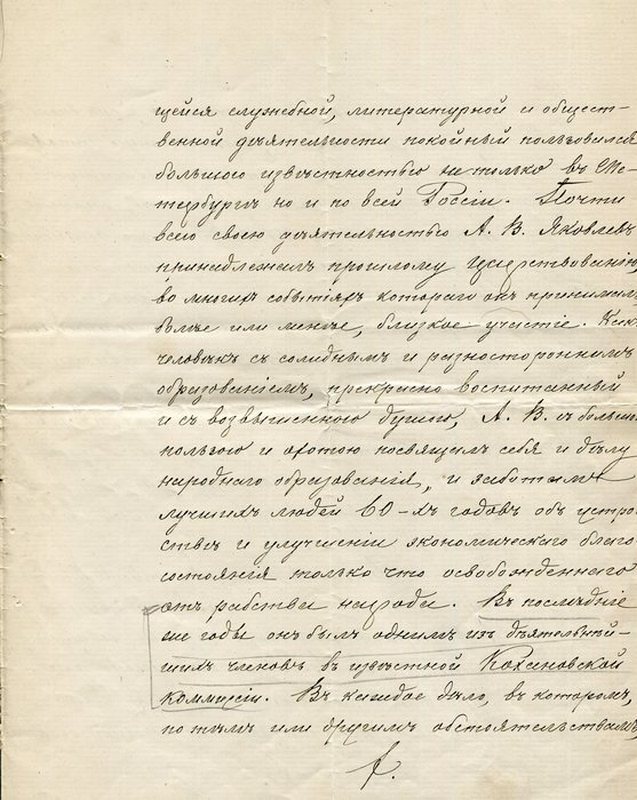 щейся служебной, литературной и общест-
венной дѣятельности покойный пользовался
большою извѣстностью не только въ Пе-
тербургѣ но и по всей Россіи. Почти
всею своею дѣятельностью А. В. Яковлевъ
принадлежалъ прошлому царствованію,
во многихъ событіяхъ котораго онъ принималъ
болѣе или менѣе, близкое участіе. Какъ
человѣкъ съ солиднымъ и разностороннимъ
образованіемъ, прекрасно воспитанный
и съ возвышенною душою, А. В. съ большою
пользою и охотою посвящалъ себя и дѣлу
народнаго образованія, и заботамъ
лучшихъ людей 60-хъ годовъ объ устрой-
ствѣ и улучшеніи экономическаго благо-
состоянія только что освобожденнаго
отъ рабства народа. Въ послѣдніе
же годы онъ былъ однимъ изъ дѣятельнѣй-
шихъ членовъ въ извѣстной Кохановской
коммисіи. Въ каждое дѣло, въ которомъ,
по тѣмъ или другимъ обстоятельствамъ,